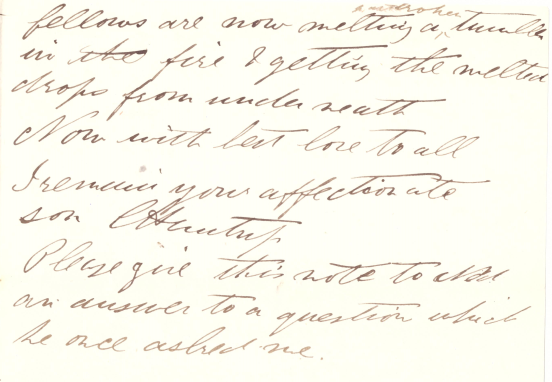 broken
fellows are now melting a tumbler
in the fire & getting the melted
drops from underneath
Now with best love to all
I remain your affectionate
son
Please give this note to
an answer to a question which
he once asked me.